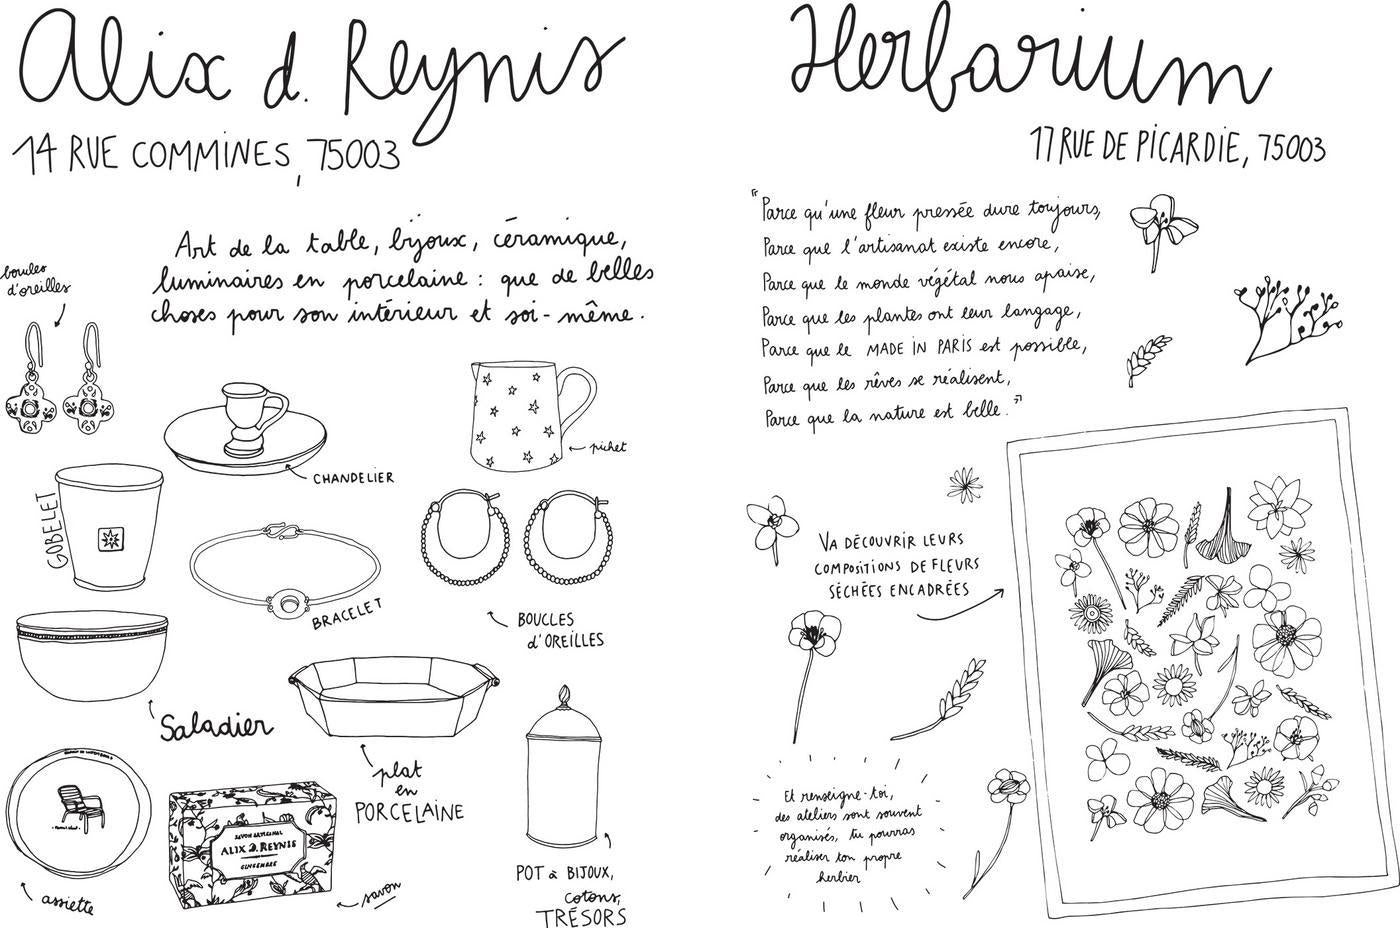 Alix d. Reynis
14 RUE COMMINES, 75003
Art de la table, bijoux, céramique,
luminaires en porcelaine : que de belles
choses pour son intérieur et soi-même.
boucles
d'oreilles
CHANDELIER
pichet
GOBELET
BRACELET
BOUCLES
d'OREILLES
Saladier
plat
en
PORCELAINE
assiette
SAVON ARTISANAL
ALIX D. REYNIS
GINGEMBRE
savon
POT à BIJOUX,
cotons,
TRÉSORS
Herbarium
17 RUE DE PICARDIE, 75003
"Parce qu'une fleur pressée dure toujours,
Parce que l'artisanat existe encore,
Parce que le monde végétal nous apaise,
Parce que les plantes ont leur langage,
Parce que le MADE IN PARIS est possible,
Parce que les rêves se réalisent,
Parce que la nature est belle."
VA DÉCOUVRIR LEURS
COMPOSITIONS DE FLEURS
SÉCHÉES ENCADRÉES
Et renseigne-toi,
des ateliers sont souvent
organisés, tu pourras
réaliser ton propre
herbier